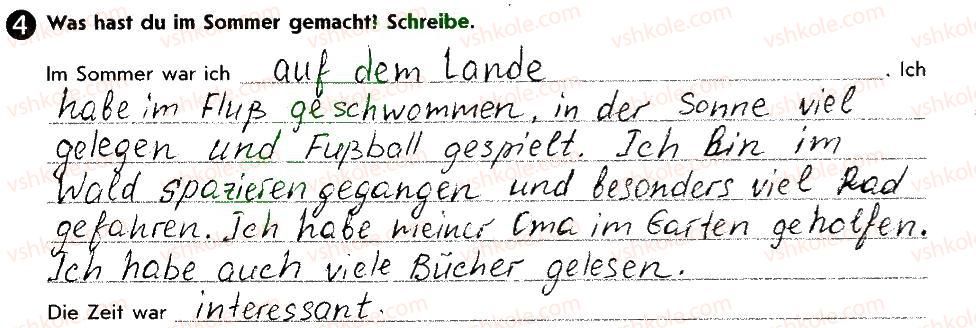 4 Was hast du im Sommer gemacht? Schreibe.
Im Sommer war ich auf dem Lande. Ich
habe im Fluß geschwommen, in der Sonne viel
gelegen und Fußball gespielt. Ich bin im
Wald spazieren gegangen und besonders viel Rad
gefahren. Ich habe meiner Oma im Garten geholfen.
Ich habe auch viele Bücher gelesen.
Die Zeit war interessant.
vshkole.com